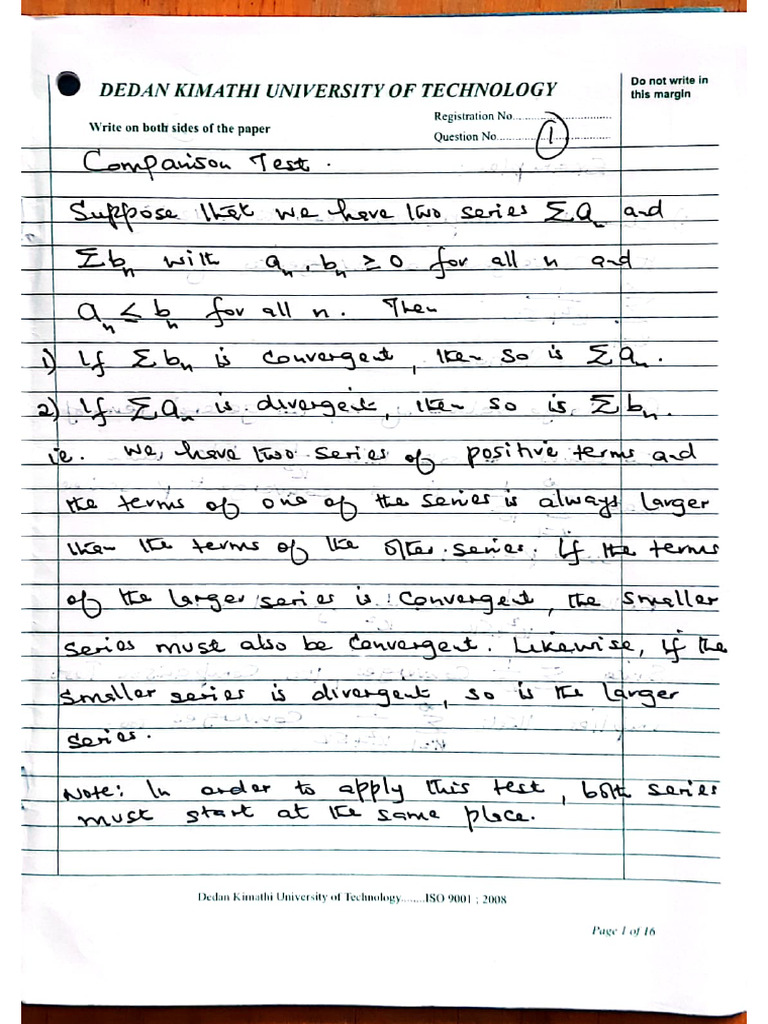 DEDAN KIMATHI UNIVERSITY OF TECHNOLOGY
Do not write in
this margin
Write on both sides of the paper
Registration No...........................
Question No........................... 1
Comparison Test.
Suppose that we have two series Σaₙ and
Σbₙ with aₙ, bₙ ≥ 0 for all n and
aₙ ≤ bₙ for all n. Then
1) If Σbₙ is convergent, then so is Σaₙ.
2) If Σaₙ is divergent, then so is Σbₙ.
ie. we, have two series of positive terms and
the terms of one of the series is always larger
then the terms of the other series. If the terms
of the larger series is convergent, the smaller
series must also be convergent. Likewise, if the
smaller series is divergent, so is the larger
series.
Note: In order to apply this test, both series
must start at the same place.
Dedan Kimathi University of Technology........ISO 9001 : 2008
Page 1 of 16